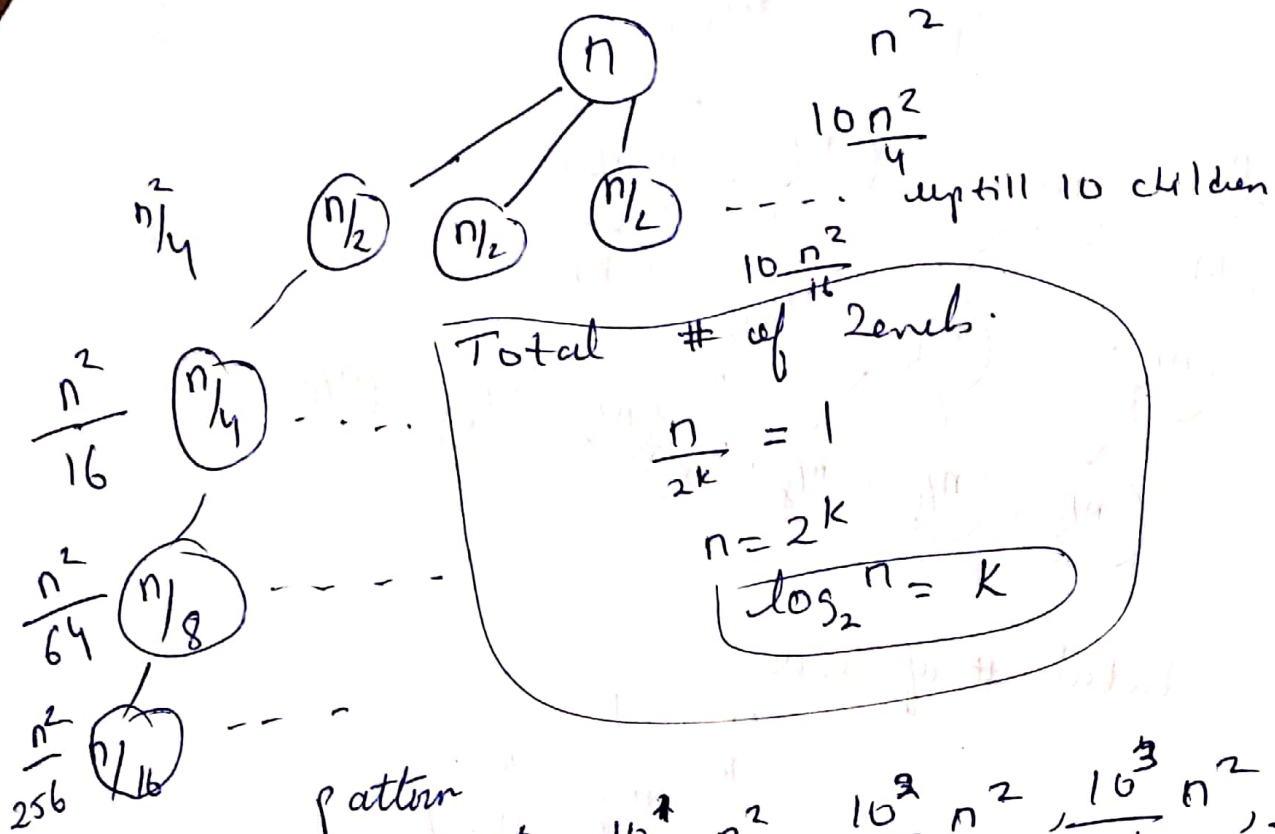 n
n²
10n²/4
n²/4 n/2 n/2 n/2 - - - - . uptill 10 children
10 n²/16
Total # of
n²/16 n/4 - . . . .
n/2^k = 1
n = 2^k
log₂ n = K
n²/64 n/8 - - - - -
n²/256 n/16 - - -
pattern
10² n² , 10³ n² ,